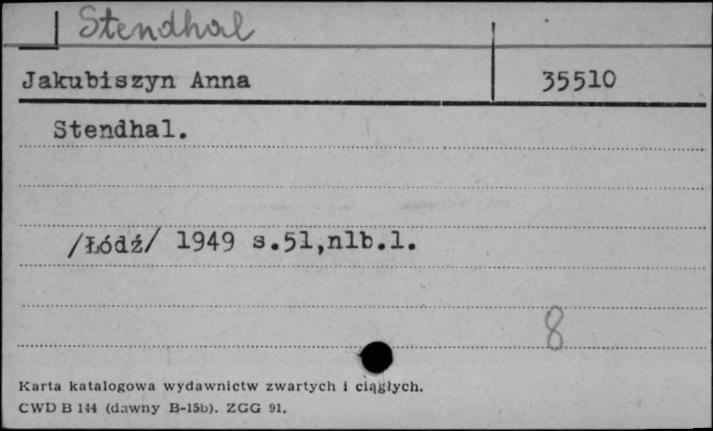 Stendhal
Jakubiszyn Anna 35510
Stendhal.
/Łódź/ 1949 s.51,nlb.1.
8
Karta katalogowa wydawnictw zwartych i ciągłych.
CWD B 144 (dawny B-15b). ZGG 91.